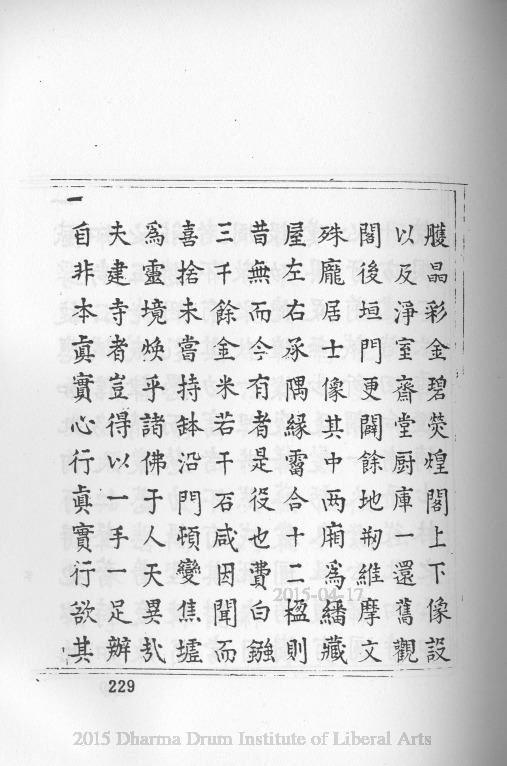 雘晶彩金碧熒煌閣上下像設
以及淨室齋堂厨庫一還舊觀
閣後垣門更闢餘地剏維摩文
殊龐居士像其中两廂為繙藏
屋左右承隅緣霤合十二楹則
昔無而今有者是役也費白鏹
三千餘金米若干石咸因聞而
喜捨未嘗持鉢沿門頓變焦墟
為靈境煥乎諸佛于人天異㢤
夫建寺者豈得以一手一足辦
自非本眞實心行眞實行欲其
一
229
2015-04-17
2015 Dharma Drum Institute of Liberal Arts